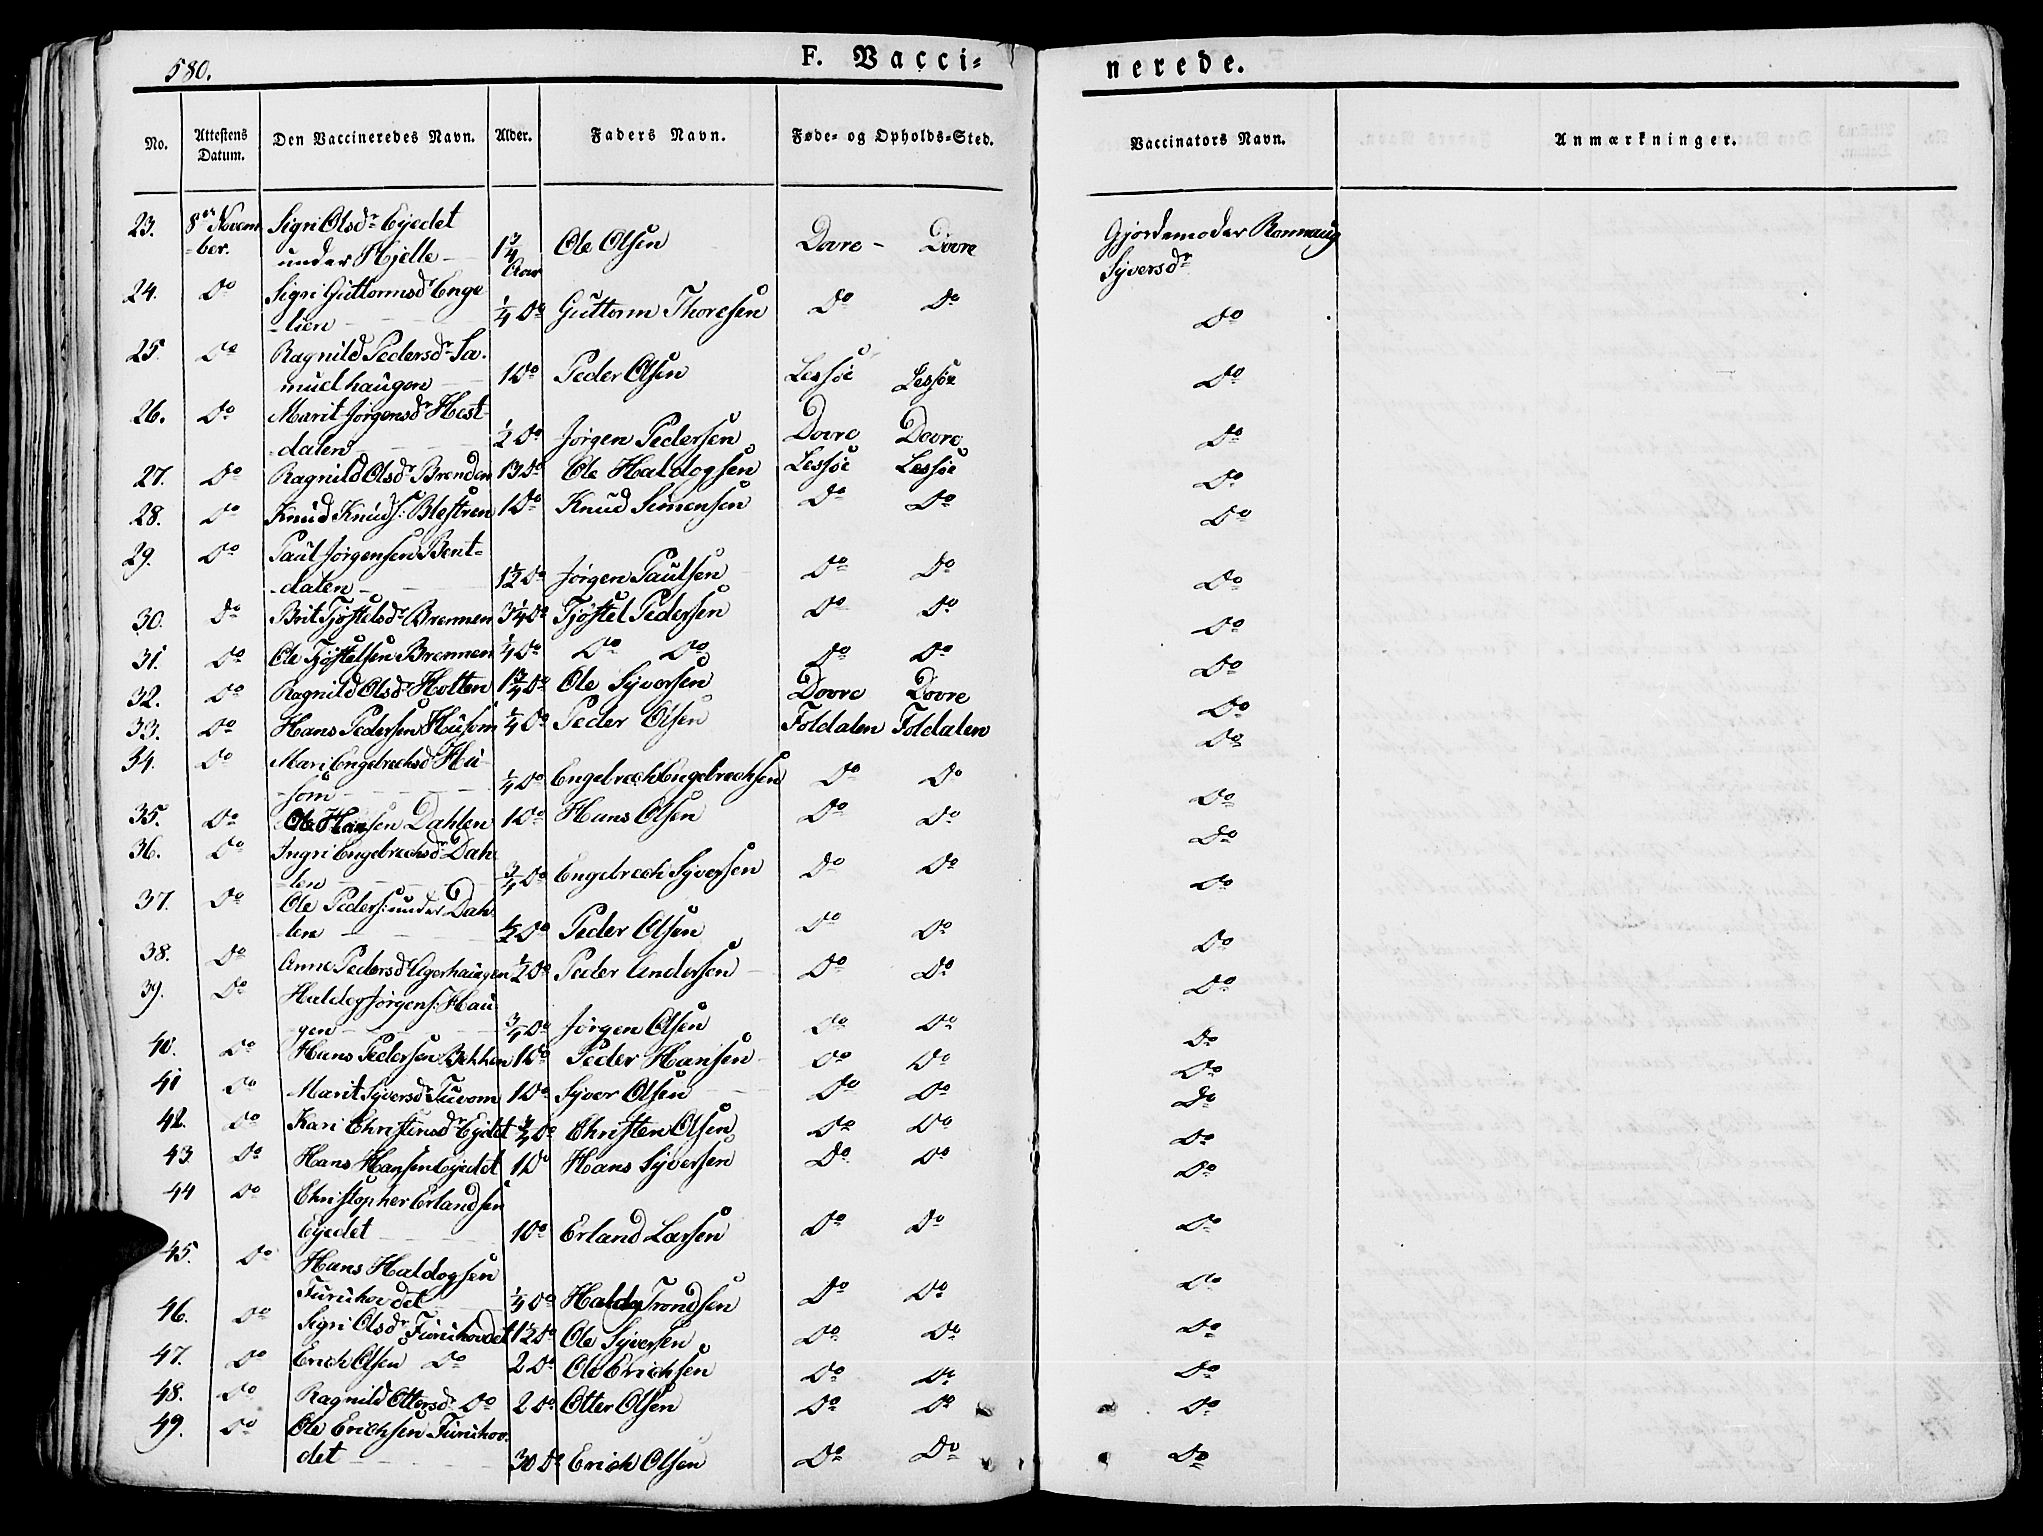 580.
F. Vacci-
nerede.
No. Attestens Datum. Den Vaccineredes Navn. Alder. Faders Navn. Føde- og Opholds-Sted. Vaccinators Navn. Anmærkninger.
23. 8de Novem- Sigri Olsdr Eyedet
-ber. under Hjelle 1 3/4 Aar Ole Olsen Dovre - Dovre Gjordemoder Ronnaug Syversdr
24. Do Sigri Guttormsdr Enge
-lien 1/4 Do Guttorm Thoresen Do Do Do
25. Do Ragnild Pedersdr Sa-
muelhaugen 1 Do Peder Olsen Lessøe Lessøe Do
26. Do Marit Jørgensdr Hest-
-dalen 1/2 Do Jørgen Pedersen Dovre Dovre Do
27. Do Ragnild Olsdr Brenden 13 Do Ole Haldogsen Lessøe Lessøe Do
28. Do Knud Knuds: Blestren 1 Do Knud Simensen Do Do Do
29. Do Paul Jørgensen Bent-
-dalen 1 1/2 Do Jørgen Paulsen Do Do Do
30. Do Brit Tjøstelsdr Brennen 3 1/4 Do Tjøstel Pedersen Do Do Do
31. Do Ole Tjøstelsen Brennen 1/4 Do Do Do Do Do Do
32. Do Ragnild Olsdr Holten 1 3/4 Do Ole Syversen Dovre Dovre Do
33. Do Hans Pedersen Husom 1/4 Do Peder Olsen Foldalen Foldalen Do
34. Do Mari Engebrechsdr Hu-
-som 1/4 Do Engebrech Engebrechsen Do Do Do
35. Do Ole Hansen Dahlen 1 Do Hans Olsen Do Do Do
36. Do Ingri Engebrechsdr Dah-
-len 3/4 Do Engebrech Syversen Do Do Do
37. Do Ole Peders: under Dah-
-len 1/2 Do Peder Olsen Do Do Do
38. Do Anne Pedersdr Agerhaugen 1/2 Do Peder Andersen Do Do Do
39. Do Haldog Jørgens: Hau-
-gen 3/4 Do Jørgen Olsen Do Do Do
40. Do Hans Pedersen Bekken 1 Do Peder Hansen Do Do Do
41 Do Marit Syversdr 1 Do Syver Olsen Do Do Do
42. Do Kari Christensdr Eyedet 3/4 Do Christen Olsen Do Do Do
43. Do Hans Hansen Eyedet 1 Do Hans Syversen Do Do Do
44 Do Christopher Erlandsen
Eyedet 1 Do Erland Larsen Do Do Do
45. Do Hans Haldogsen
Furuhovdet 1/4 Do Haldog Trondsen Do Do Do
46. Do Sigri Olsdr Furuhovdet 1 1/2 Do Ole Syversen Do Do Do
47. Do Erich Olsen Do 2 Do Ole Erichsen Do Do Do
48. Do Ragnild Ottersdr Do 2 Do Otter Olsen Do Do Do
49. Do Ole Erichsen Furuhov-
det 30 Do Erich Olsen Do Do Do